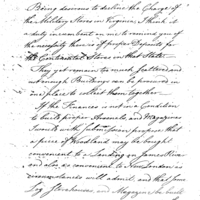 Being desirous to decline the Charge of
the Military Stores in Virginia, I think it
a duty incumbent on me to remind you of
the necessity there is of proper Deposits for
the Continental Stores in that State.
They yet remain too much scattered and
no buildings can be procured in
one place to collect them together.
If the Finances is not in a Condition
to build proper Arsenals and Magazines
I would with submission propose that
a piece of Woodland may be bought
convenient to a Landing on James River
and also as convenient to New London as
circumstances will admit, and that some
Log Storehouses, and Magazine be built